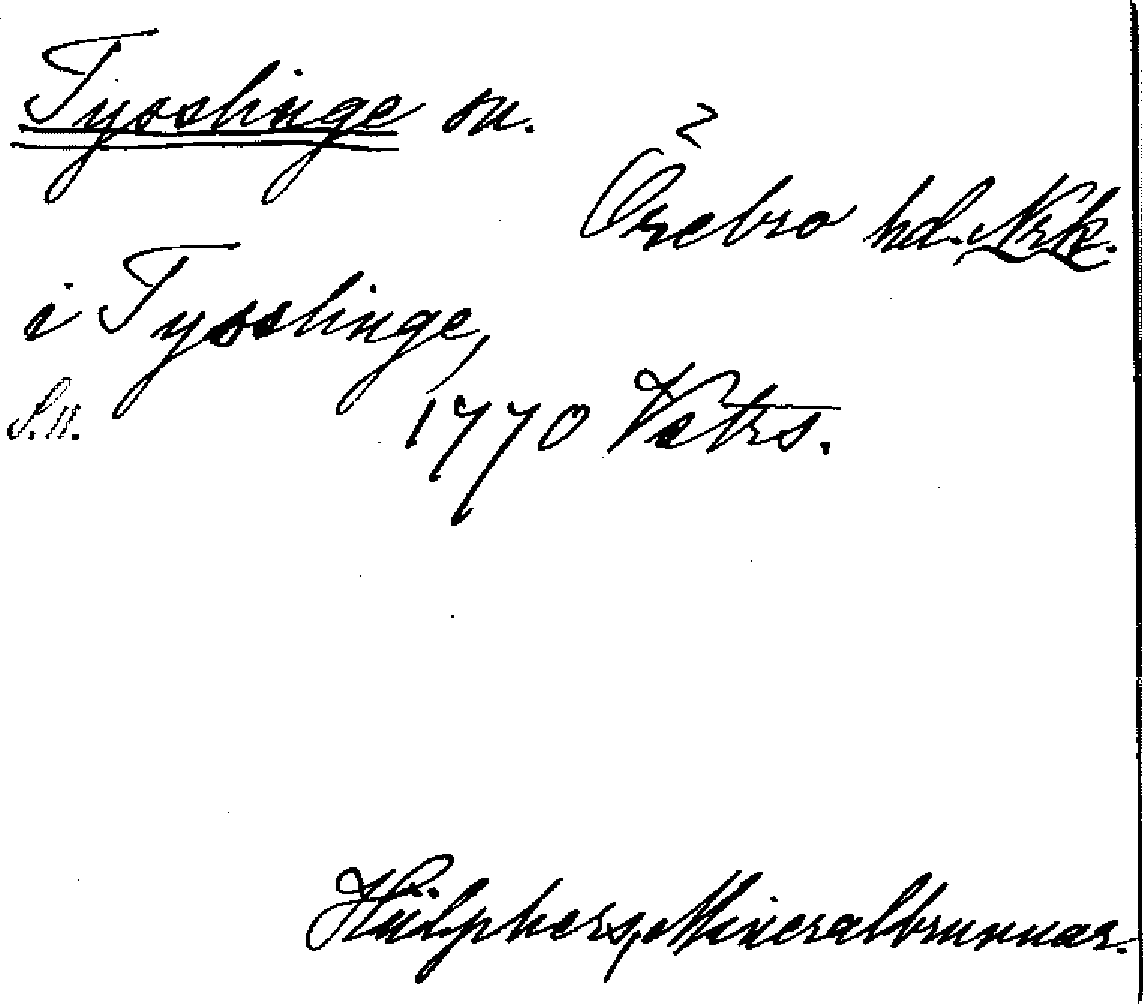 Tysslinge sn.
Örebro hd. Nrk.
i Tysslinge,
S.n. 1770 Vetrs.
Hülphers, Mineralbrunnar.